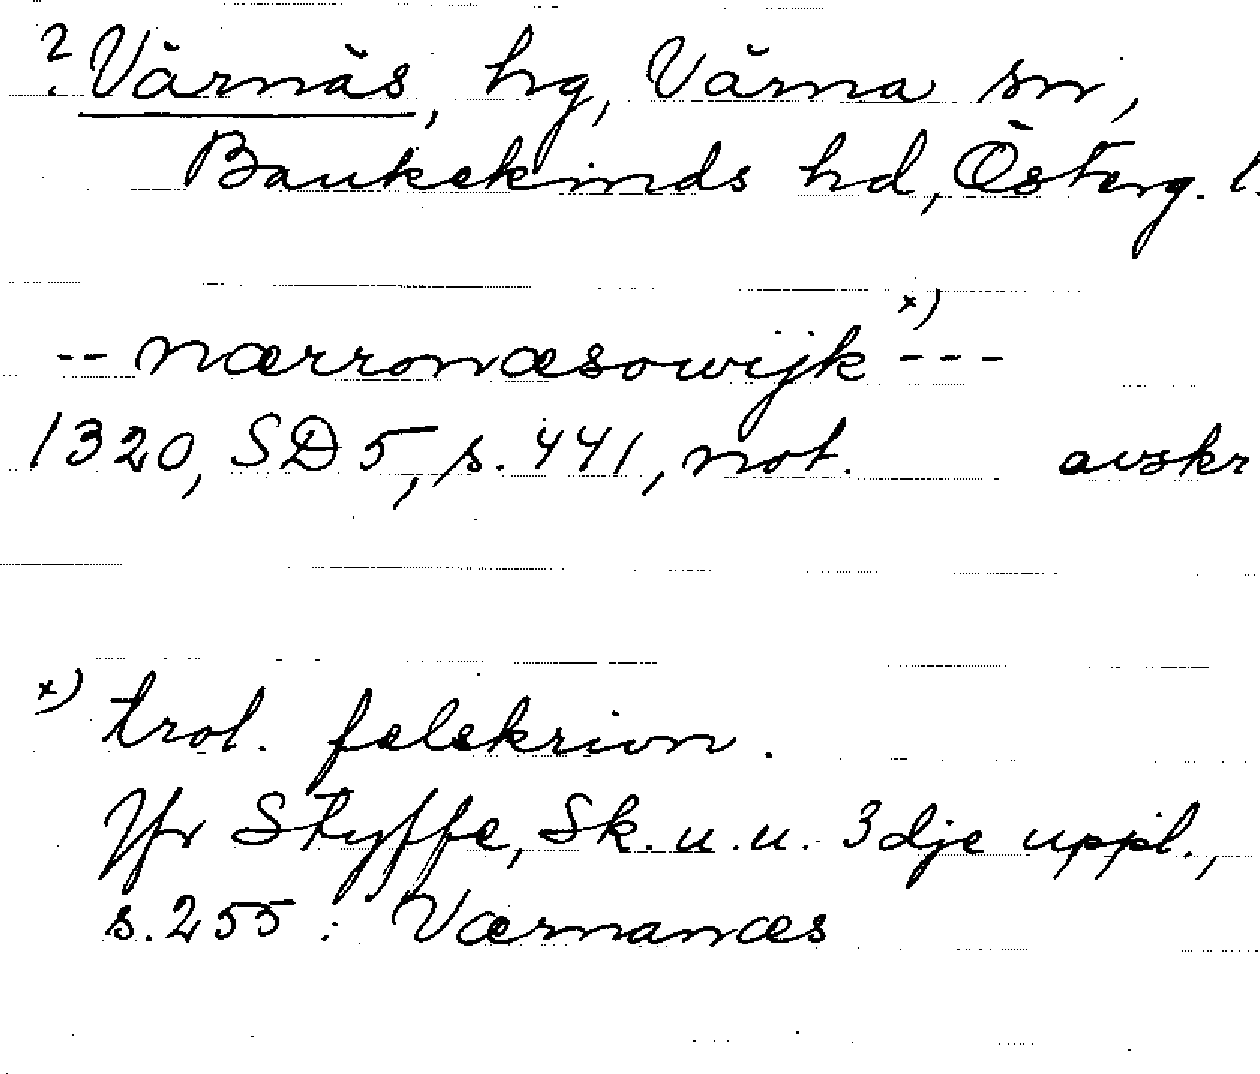 ? Värnäs, hg, Värna sn,
Bankekinds hd, Österg. l.
-- nærronæsowijk x) ---
1320, SD 5, s. 441, not. avskr
x) trol. felskrivn.
Jfr Styffe, Sk. u. u. 3dje uppl.,
s. 255 : Værnanæs